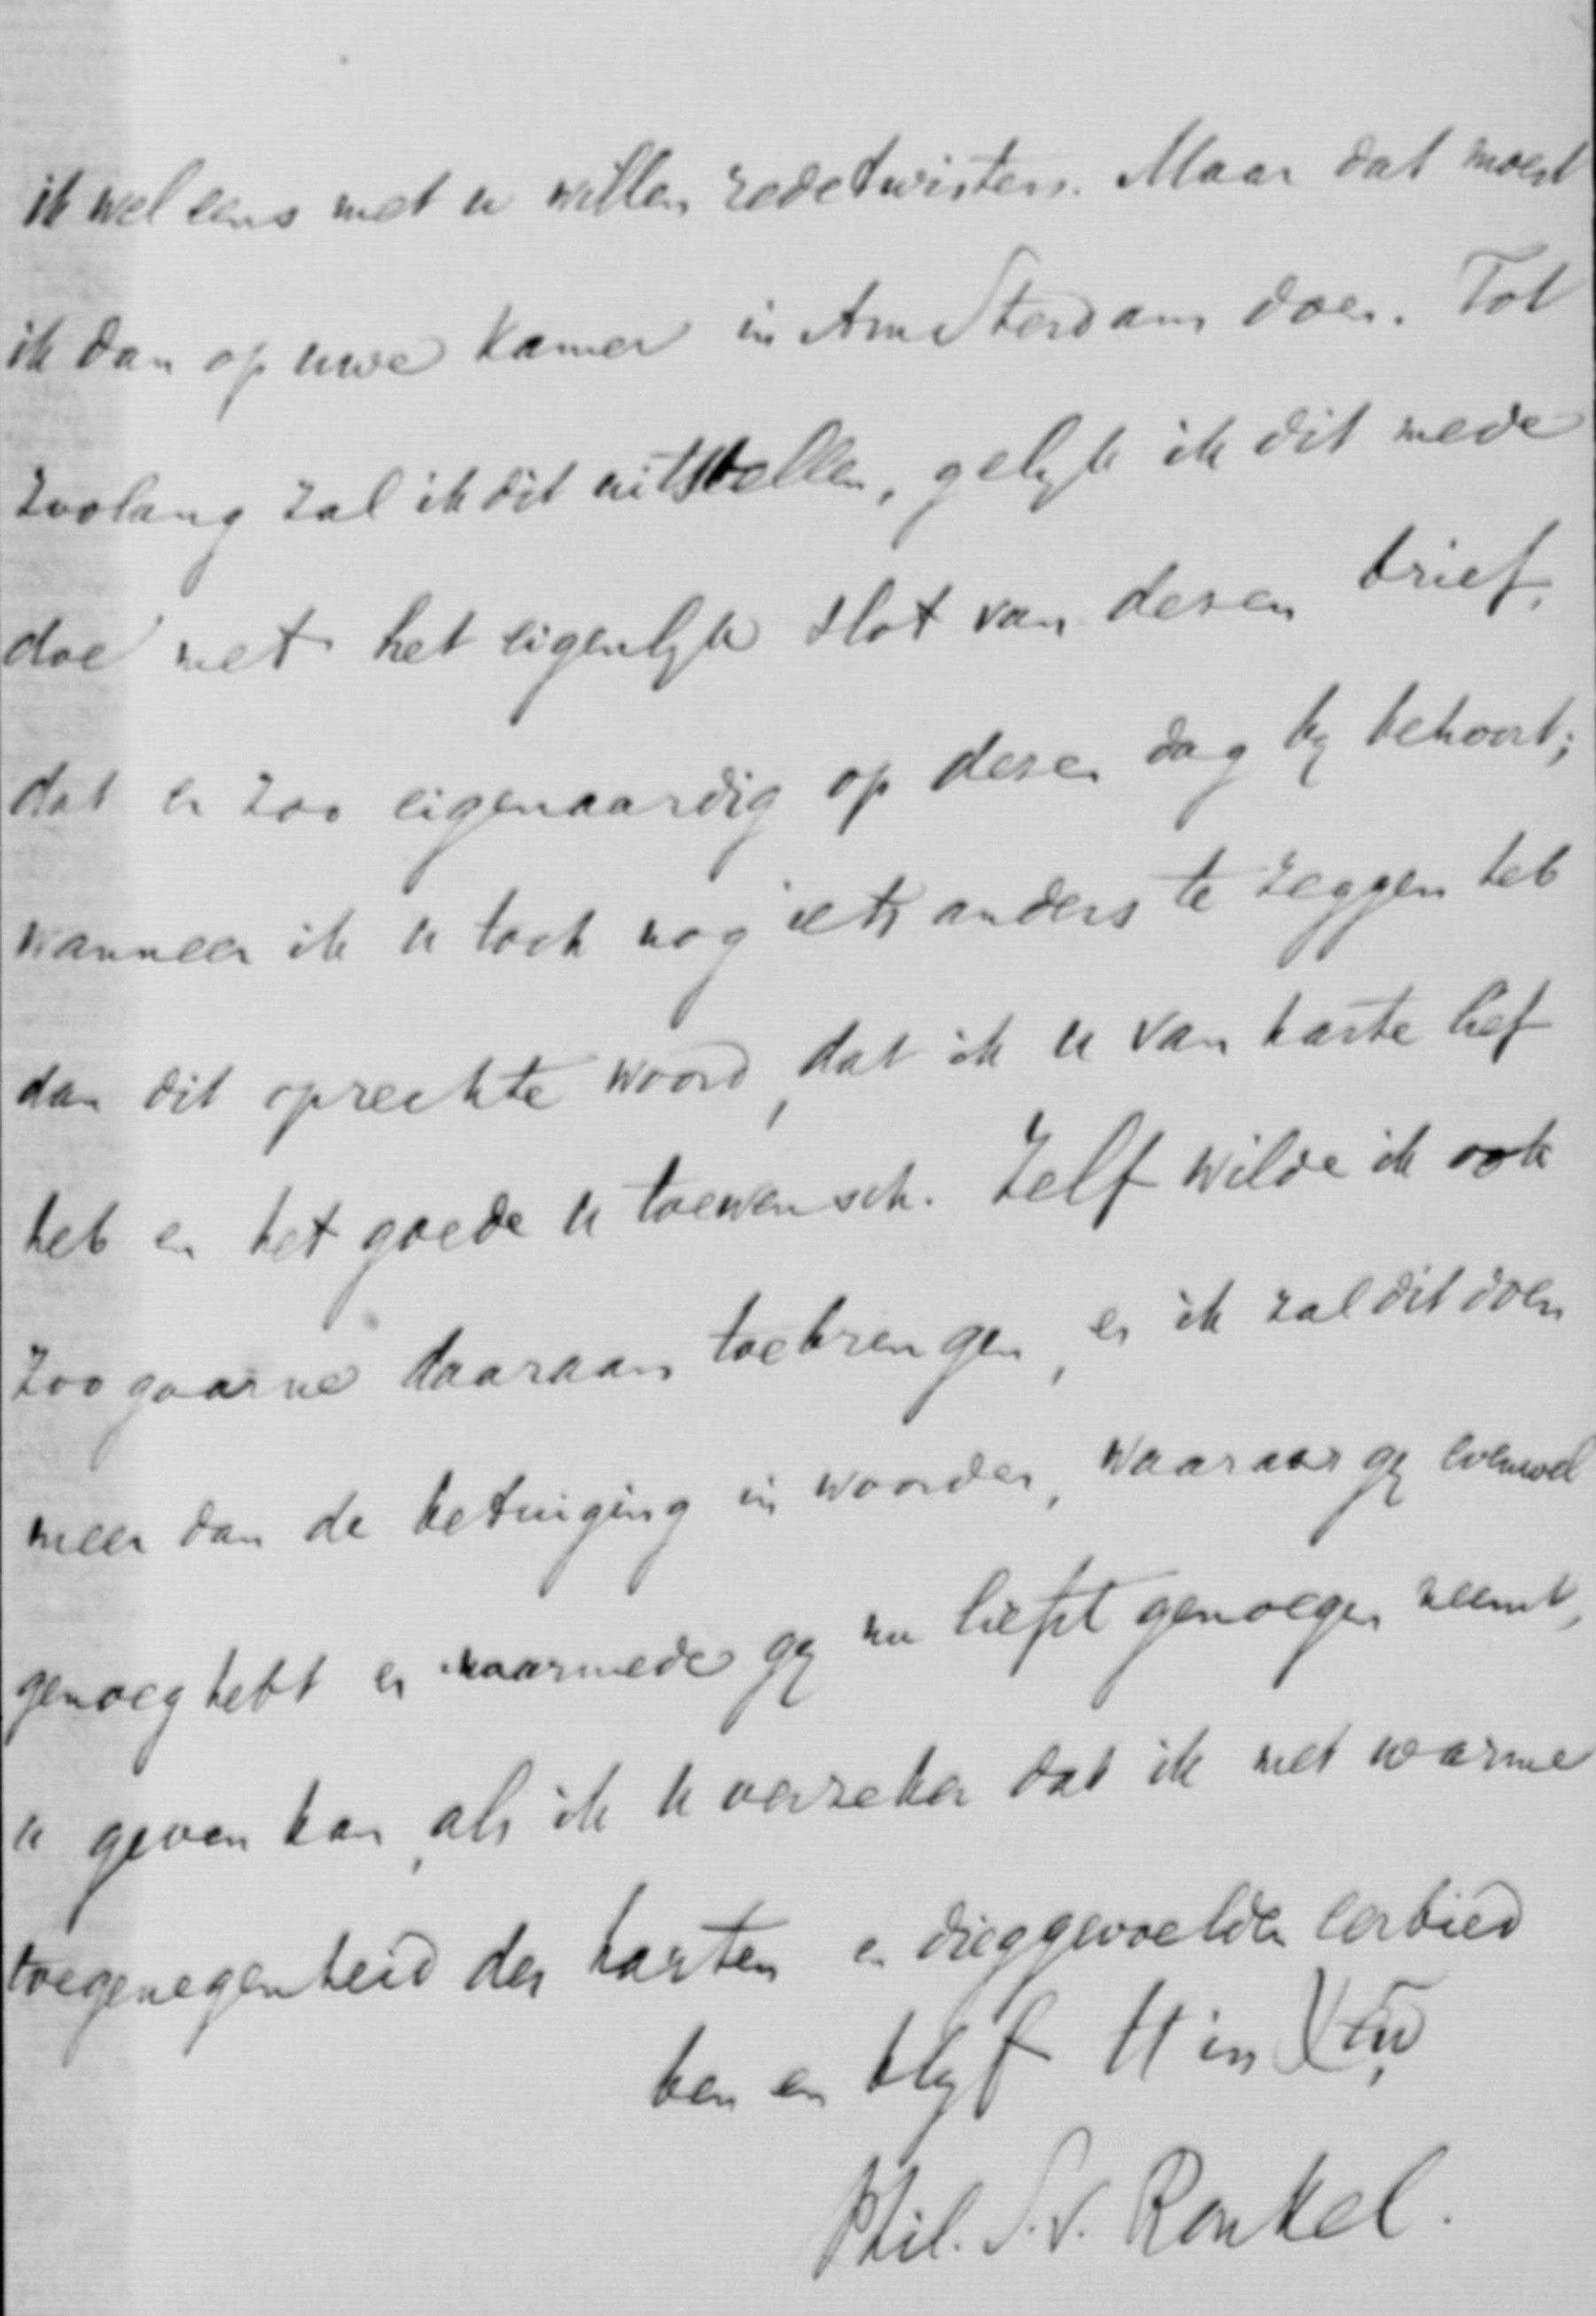 ik wel eens met u willen redetwisten. Maar dat moest
ik dan op uwe kamer in Amsterdam doen. Tot
zoolang zal ik dit uitstellen, gelijk ik dit mede
doe met het eigenlijk slot van dezen brief,
dat er zoo eigenaardig op dezen dag bij behoort;
wanneer ik u toch nog iets anders te zeggen heb
dan dit oprechte woord, dat ik u van harte lief
heb en het goede u toewensch. Zelf wilde ik ook
zoo gaarne daaraan toebrengen, en ik zal dit doen
meer dan de betuiging in woorden, waaraan gij evenwel
genoeg hebt en waarmede gij nu liefst genoegen neemt,
u geven kan, als ik u verzeker dat ik met warme
toegenegenheid des harten en diepgevoelden eerbied
ben en blijf U in
Phil. S. v. Ronkel.